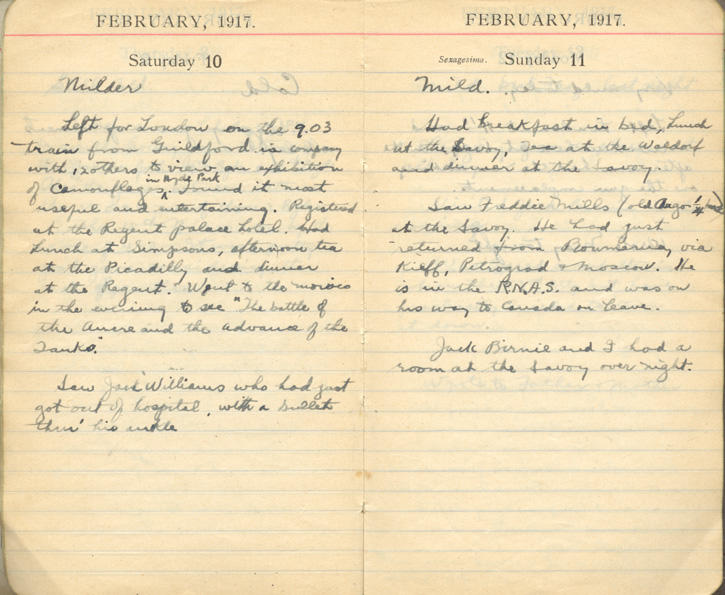 FEBRUARY, 1917.
Saturday 10
Milder
Left for London on the 9.03
train from Guildford in company
with 120thers to view an exhibition
in Hyde Park
of Camouflages. Found it most
useful and entertaining. Registered
at the Regent palace hotel. Had
lunch at Simpsons, afternoon tea
at the Picadilly and dinner
at the Regent. Went to the movies
in the evening to see "The battle of
the Ancre and the advance of the
Tanks."
Saw Jack Williams who had just
got out of hospital, with a bullet
thru' his ankle
FEBRUARY, 1917.
Sexagesima. Sunday 11
Mild.
Had breakfast in bed, lunch
at the Savoy, Tea at the Waldorf
and dinner at the Savoy.
Saw Freddie Mills (old
at the Savoy. He had just
returned from Roumania, via
Kieff, Petrograd & Moscow. He
is in the R.N.A.S. and was on
his way to Canada on leave.
Jack Birnie and I had a
room at the Savoy over night.